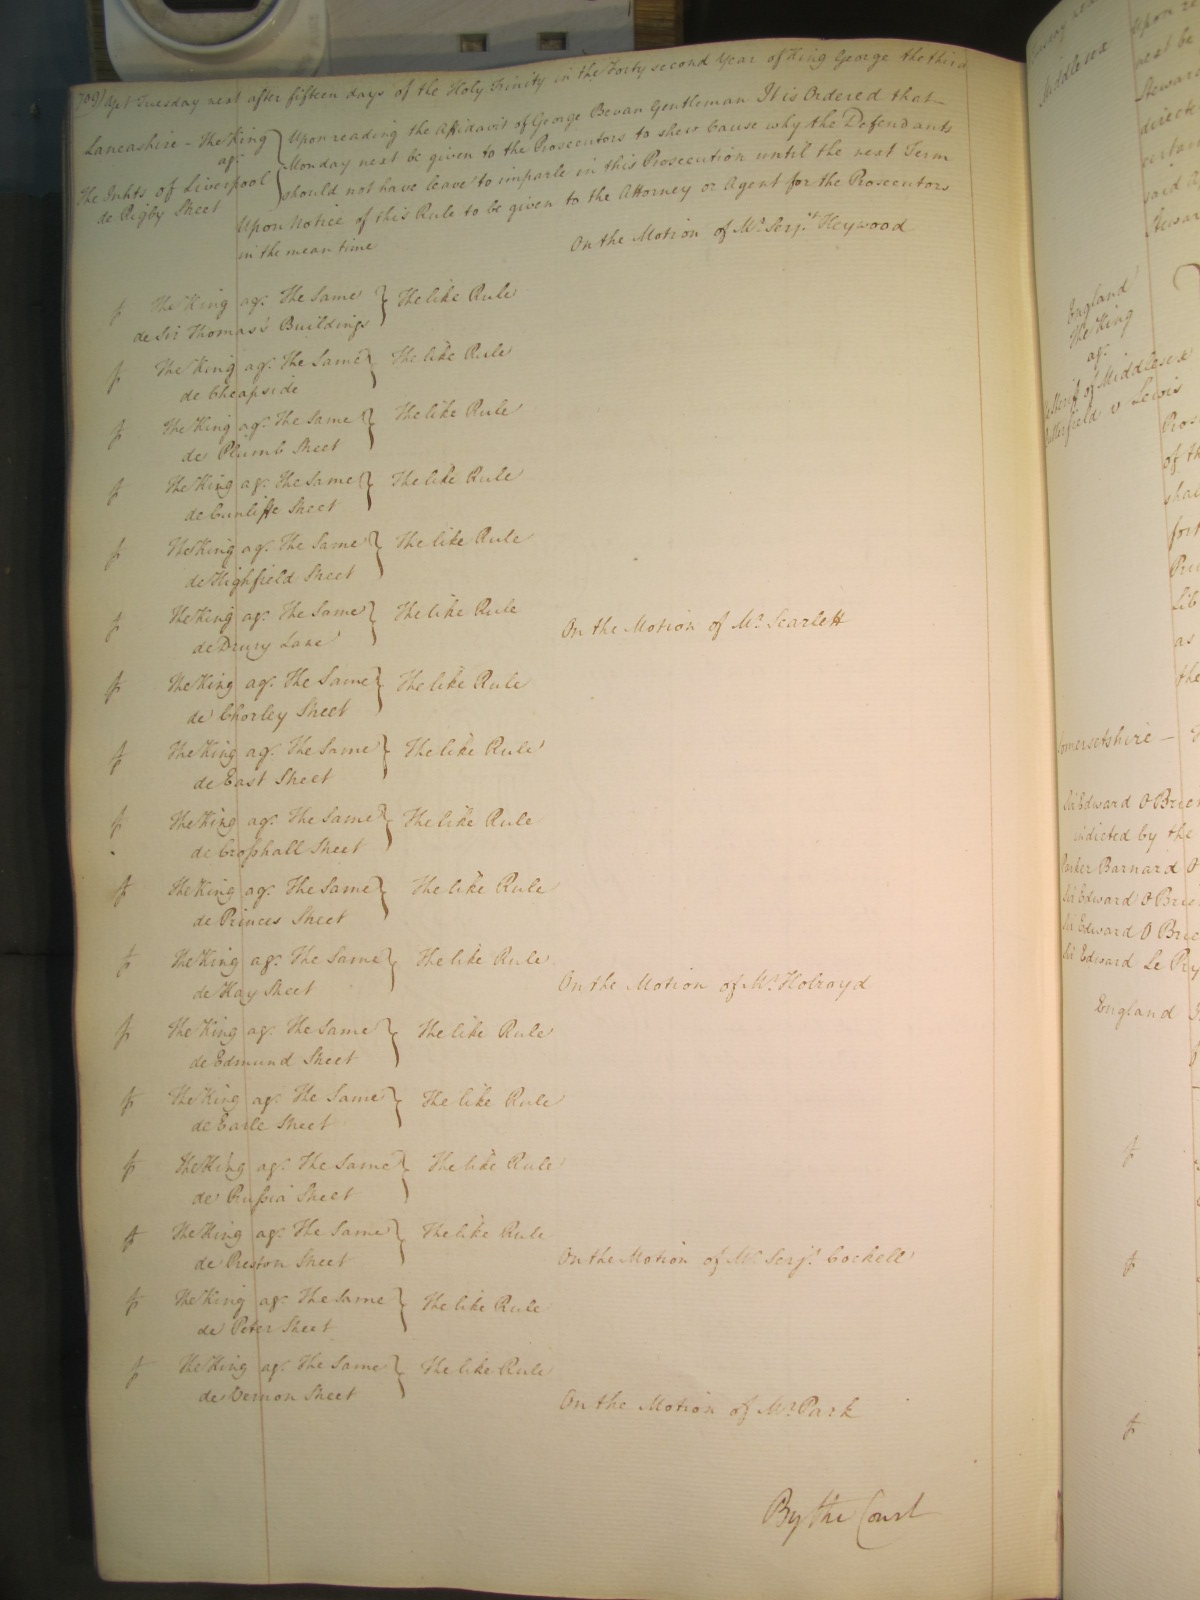 709) Tuesday next after fifteen days of the Holy Trinity in the Forty second Year of King George the third
Lancashire - The King
agt.
The Inhts. of Liverpool
de Rigby Street
Upon reading the Affidavit of George Bevan Gentleman It is Ordered that
Monday next be given to the Prosecutors to shew Cause why the Defendants
should not have leave to imparle in this Prosecution until the next Term
Upon Notice of this Rule to be given to the Attorney or Agent for the Prosecutors
in the mean time
On the Motion of Mr. Serjt. Heywood
The King agt. The Same } The like Rule
de Sir Thomas's Buildings
The King agt. The Same } The like Rule
de Cheapside
The King agt. The Same } The like Rule
de Plumb Street
The King agt. The Same } The like Rule
de Cunliffe Street
The King agt. The Same } The like Rule
de Highfield Street
The King agt. The Same } The like Rule
de Drury Lane
On the Motion of Mr. Scarlett
The King agt. The Same } The like Rule
de Chorley Street
The King agt. The Same } The like Rule
de East Street
The King agt. The Same } The like Rule
de Crosshall Street
The King agt. The Same } The like Rule
de Princes Street
The King agt. The Same } The like Rule
de Hay Street
On the Motion of Mr. Holroyd
The King agt. The Same } The like Rule
de Edmund Street
The King agt. The Same } The like Rule
de Earle Street
The King agt. The Same } The like Rule
de Russia Street
The King agt. The Same } The like Rule
de Preston Street
On the Motion of Mr. Serjt. Cockell
The King agt. The Same } The like Rule
de Peter Street
The King agt. The Same } The like Rule
de Vernon Street
On the Motion of Mr. Park
By the Court
Middlesex
upon
next be
Steward
direct
certain
said
Steward
England
The King
agt.
Sheriff of Middlesex
v Lewis
of th
shal
Lib
as
the
Somersetshire -
Sir Edward O Brien
indicted by the
Parker Barnard O
Sir Edward O Brie
Sir Edward O Brie
Sir Edward Le
England